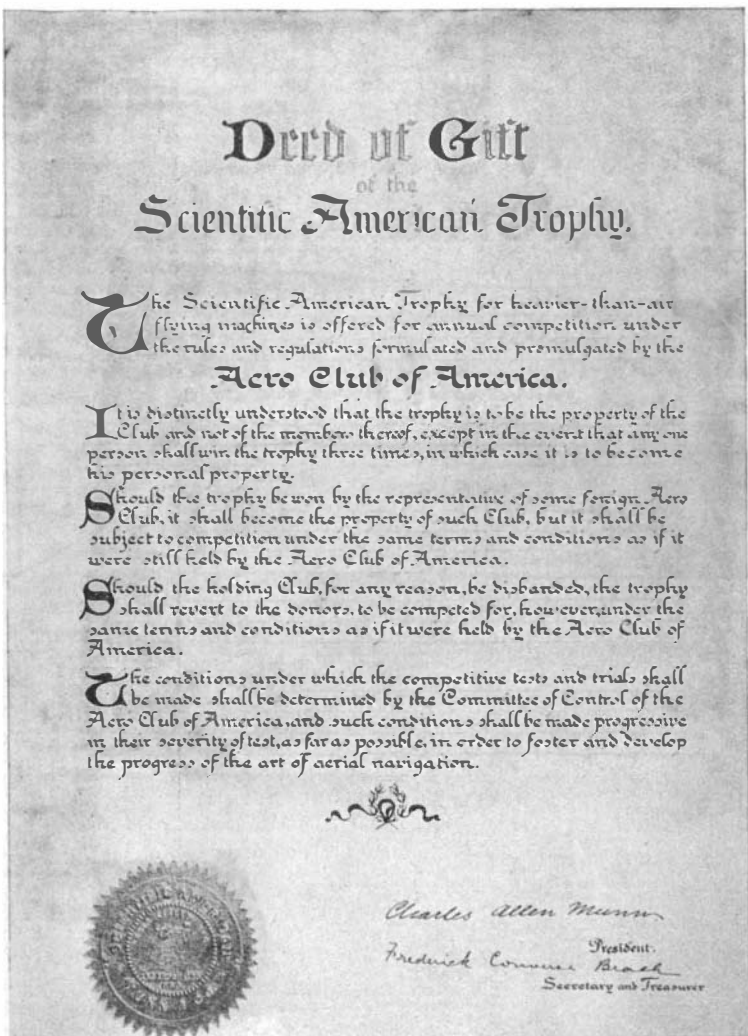 Deed of Gift
of the
Scientific American Trophy.
The Scientific American Trophy for heavier-than-air
flying machines is offered for annual competition under
the rules and regulations formulated and promulgated by the
Aero Club of America.
It is distinctly understood that the trophy is to be the property of the
Club and not of the members thereof, except in the event that any one
person shall win the trophy three times, in which case it is to become
his personal property.
Should the trophy be won by the representative of some foreign Aero
Club, it shall become the property of such Club, but it shall be
subject to competition under the same terms and conditions as if it
were still held by the Aero Club of America.
Should the holding Club, for any reason, be disbanded, the trophy
shall revert to the donors, to be competed for, however, under the
same terms and conditions as if it were held by the Aero Club of
America.
The conditions under which the competitive tests and trials shall
be made shall be determined by the Committee of Control of the
Aero Club of America, and such conditions shall be made progressive
in their severity of test, as far as possible, in order to foster and develop
the progress of the art of aerial navigation.
Charles Allen Munn
President.
Frederick Converse Beach
Secretary and Treasurer